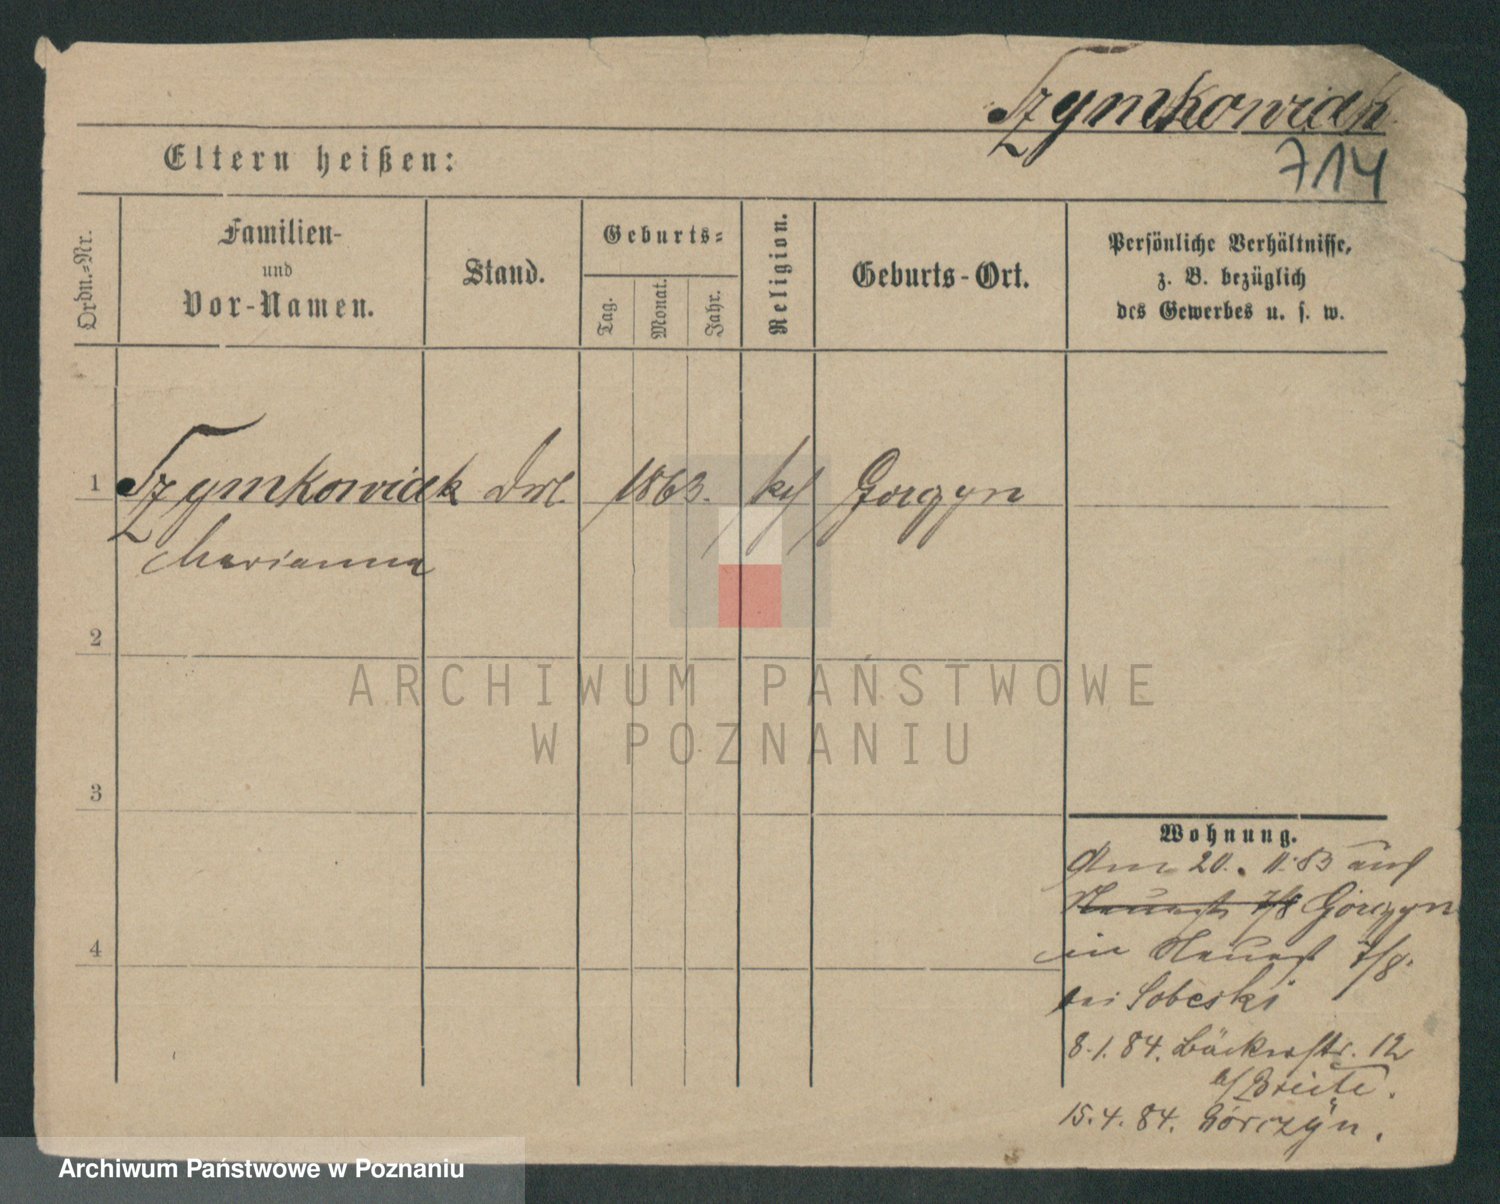 Szymkowiak
714
Eltern heißen:
Ordn.-Nr.
Familien-
und
Vor-Namen.
Stand.
Geburts-
Tag.
Monat.
Jahr.
Religion.
Geburts-Ort.
Persönliche Verhältnisse,
z. B. bezüglich
des Gewerbes u. s. w.
1 Szymkowiak 1863. Gorczyn
Marianna
2
3
4
Wohnung.
20. 11. 83 aus
7/8 Górczyn
in 7/8.
bei Sobeski
8.1.84. Bäckerstr. 12
b/ Breite.
15.4.84. Górczyn.
ARCHIWUM PAŃSTWOWE
W POZNANIU
Archiwum Państwowe w Poznaniu